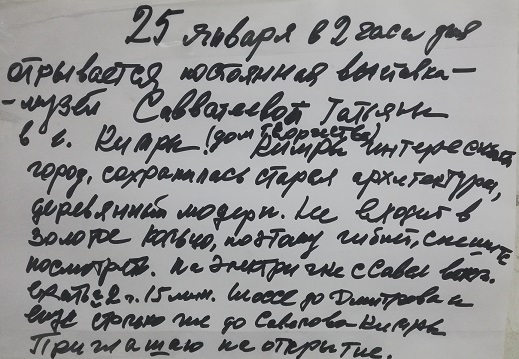 25 января в 2 часа дня
открывается постоянная выставка-
-музей Савватеевой Татьяны
в г. Кимры. (дом творчества) Кимры интересный
город, сохранилась старая архитектура,
деревянный модерн. Не входит в
Золотое кольцо, поэтому гибнет, спешите
посмотреть. На электричке с Савел. вокз.
ехать 2 ч. 15 мин. Шоссе до Дмитрова и
еще столько же до Савелово-Кимры
Приглашаю на открытие.